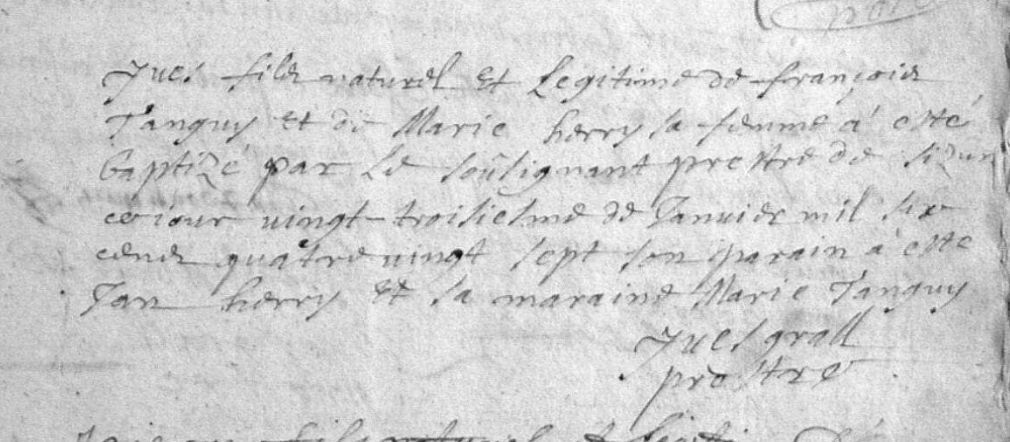 Yues fils naturel et Legitime de françois
Tanguy et de Marie herry sa femme à esté
baptizé par Le soûsignant prestre de sizun
ce iour vingt-troisiesme de Januier mil six
cents quatre vingt sept son parain à esté
Jan herry et sa maraine Marie Tanguy
Yues grall
prestre
fils naturel et legiti